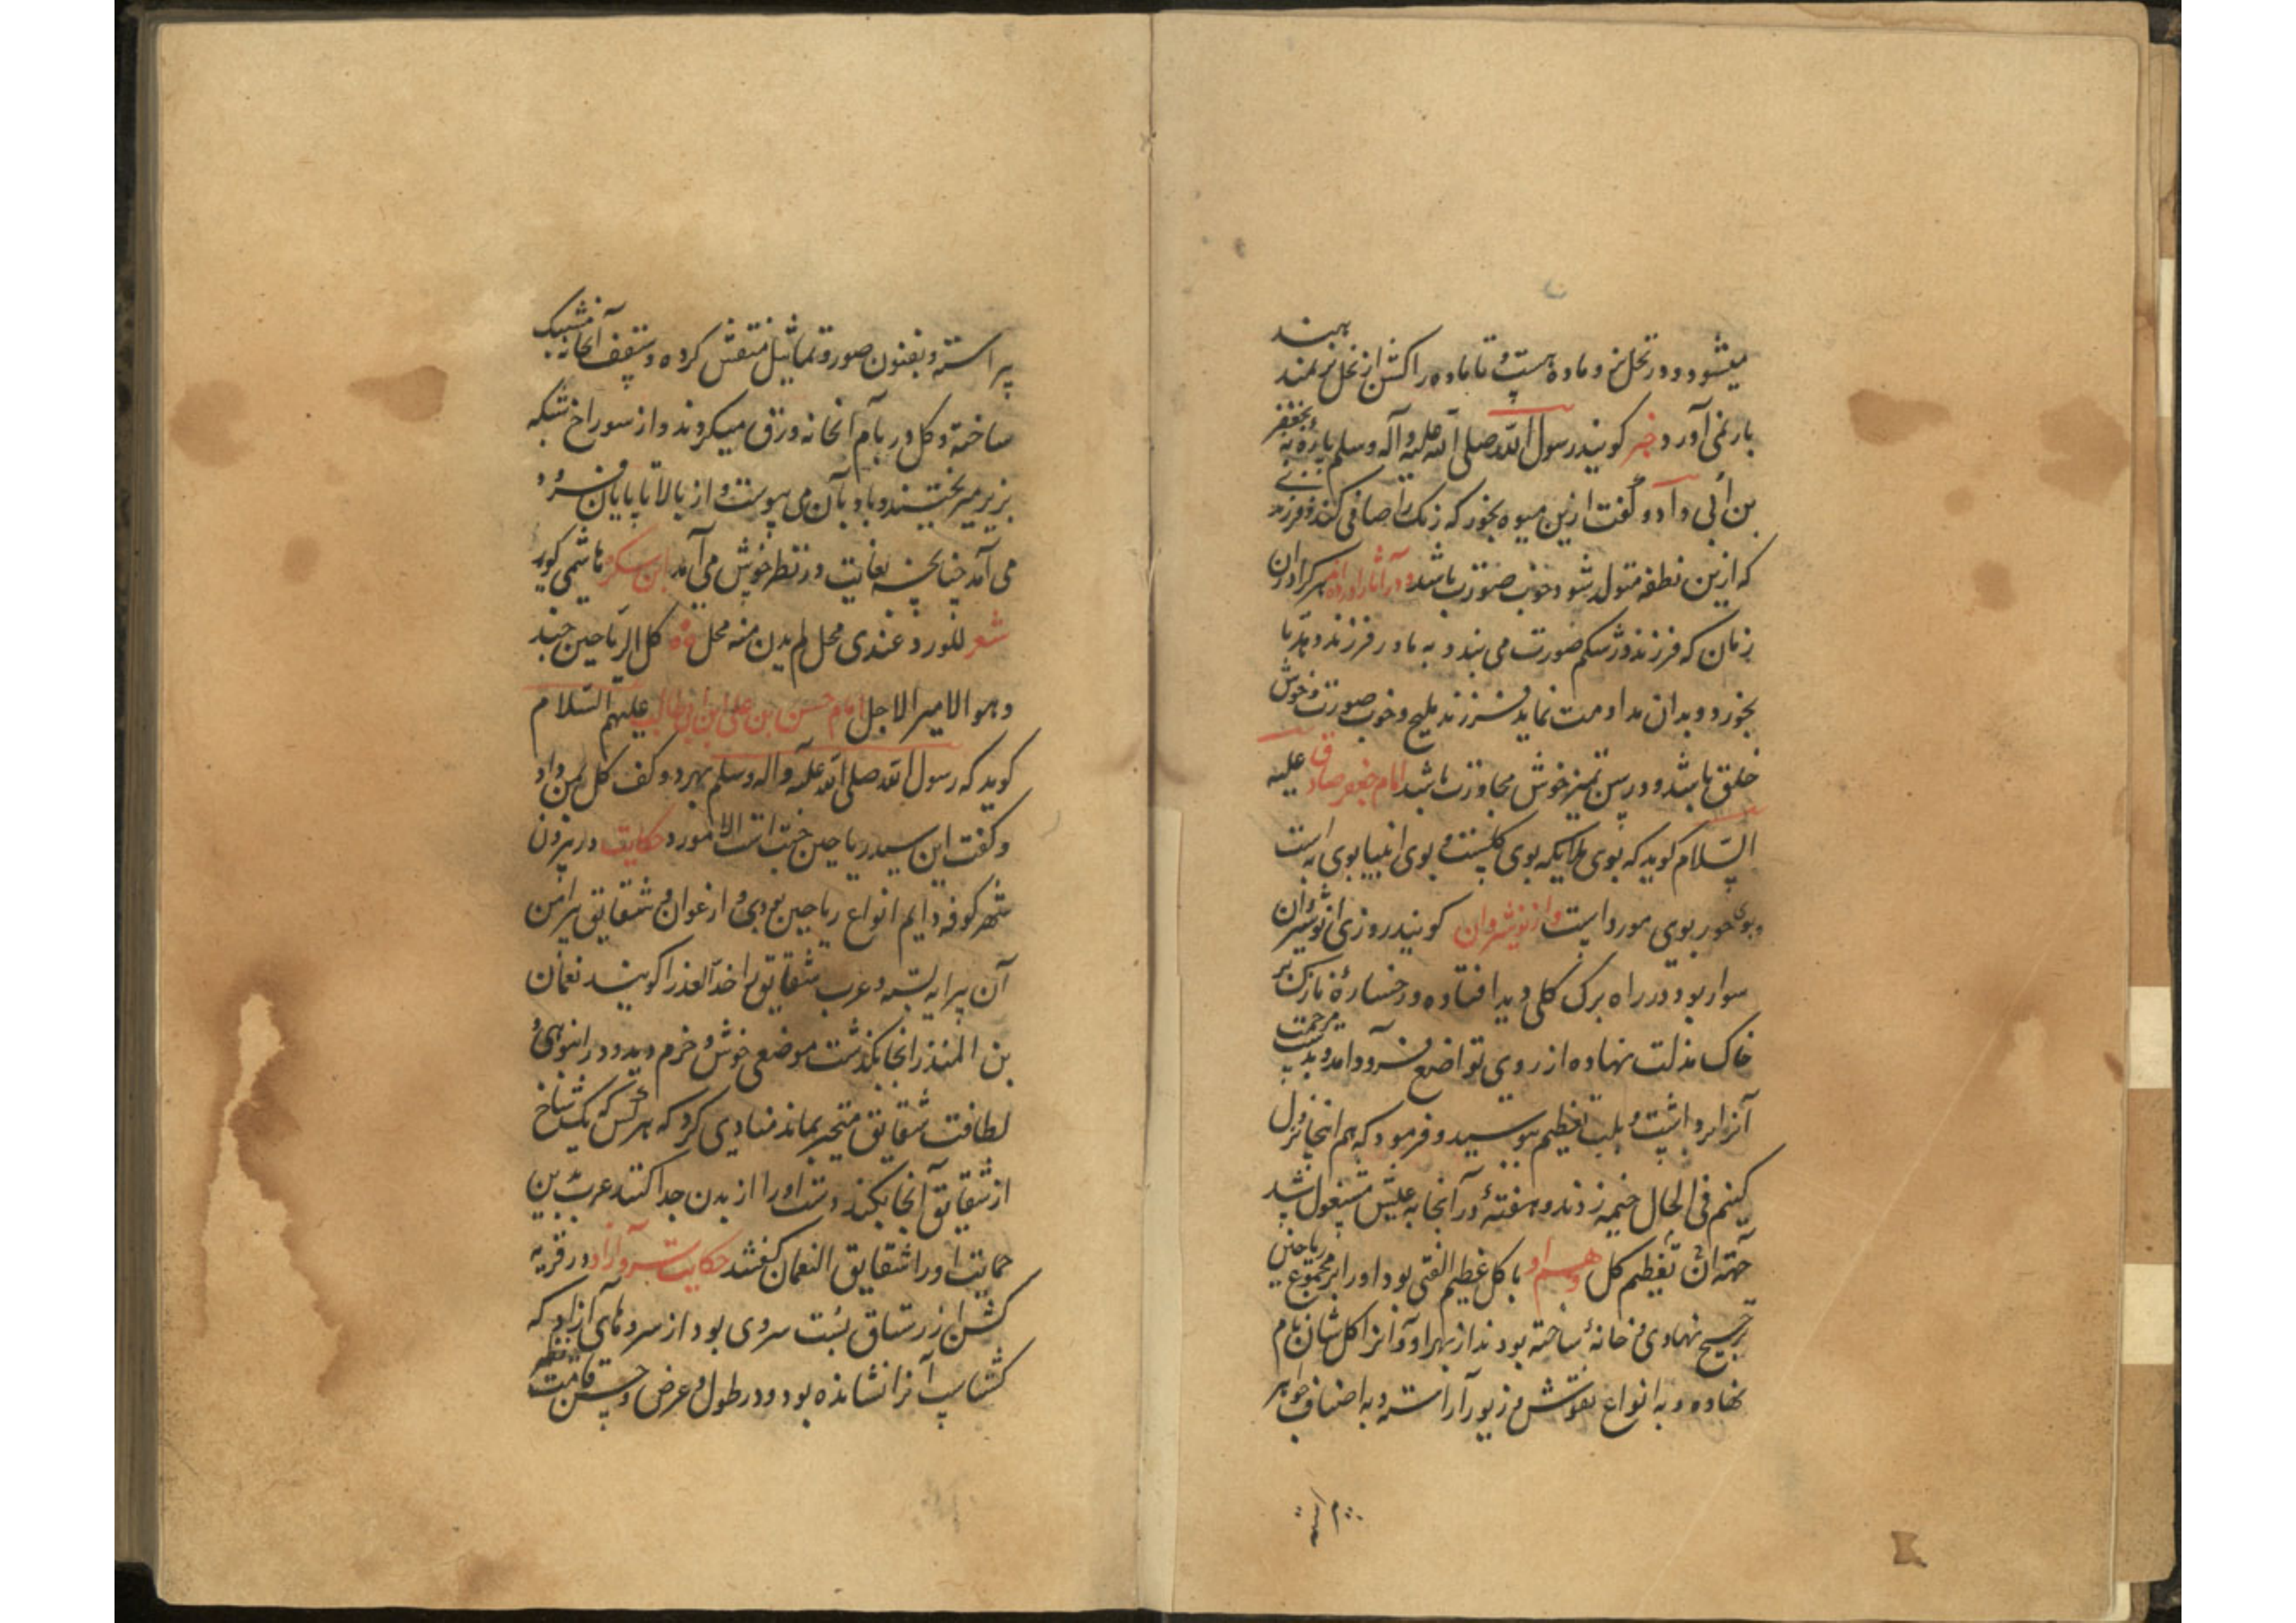 میشود و در نخل نر و ماده هست و تا ماده را کشن از نخل نر نمند
بار نمی آورد خبر کویند رسول الله صلی الله علیه و آله وسلم پاره به بجعفر
بن أبی داد و گفت ازین میوه بخور که رنک را صافی کند و فرزند
که ازین نطفه متولد شود خوب صورت باشد و در آثار آورده اند هرکرا در آن
زمان که فرزند در شکم صورت می بندد به مادر فرزند دهد تا
بخورد و بدان مداومت نماید فرزند ملیح و خوب صورت و خوش
خلق باشد و در سن تمیز خوش محاورت باشد امام جعفر صادق علیه
السّلام کوید که بوی ملایکه بوی کلست و بوی انبیا بوی به است
و بوی حور بوی مورد است و از نوشروان کویند روزی انوشیروان
سوار بود در راه برک کلی دید افتاده و رخساره نازک بر
خاک مذلت نهاده از روی تواضع فرود آمد و بدست مرحمت
آنرا برداشت و بلب تعظیم ببوسید و فرمود که هم اینجا نزول
کنیم فی الحال خیمه زدند و هفتهٔ در آنجا به عیش مشغول شد
جهته آن تعظیم کل و هم او با کل عظیم الفتی بود و او را بر مجموع ریاحین
ترجیح نهادی و خانهٔ ساخته بودند از بهر او و آنرا کلشان نام
نهاده و به انواع نقوش و زیور آراسته و به اصناف جواهر
پیراسته و بفنون صور و تماثیل منقش کرده و سقف آنخانه مشبک
ساخته و کل در بام آنخانه ورق میکردند و از سوراخ شبکه
بزیر میریختند و باد بآن می پیوست و از بالا تا پایان فرود
می آمد چنانچه بغایت در نظر خوش می آمد ابن سکره هاشمی کوید
شعر للورد عندی محل لم یدن منه محل کل الریاحین جند
و هو الامیر الاجل امام حسن بن علی ابن ابی طالب علیهم السّلام
کوید که رسول الله صلی الله علیه و آله وسلم بهر دو کف کل بمن داد
و کفت این سید ریاحین جنت است الا مورد حکایت در بیرون
شهر کوفه دایم انواع ریاحین بودی و ارغوان و شقایق پیرامن
آن پیرایه بسته و عرب شقایق را خد العذرا کویند نعمان
بن المنذر آنجا بکذشت موضعی خوش و خرم دید و در انبوهی و
لطافت شقایق متحیر بماند منادی کرد که هر کس که یک شاخ
از شقایق آنجا بکند دست او را از بدن جدا کنند عرب بدین
حمایت او را شقایق النعمان کفتند حکایت سرو آزاد در قریه
کشن از رستاق بست سروی بود از سروهای آزاد که
کشتاسب آنرا نشانده بود و در طول و عرض و حسن قامت